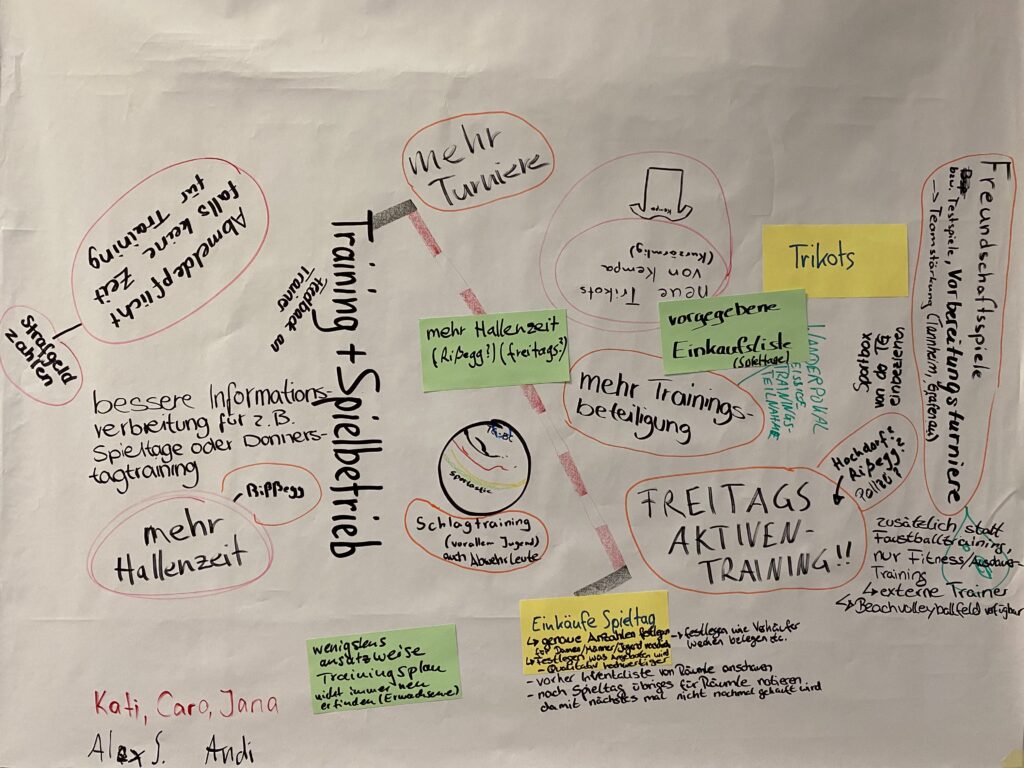 Training + Spielbetrieb
mehr
Turniere
Abmeldepflicht
falls keine Zeit
für Training
Strafgeld
zahlen
Feedback an
Trainer
bessere Informations-
verbreitung für z.B.
Spieltage oder Donners-
tagtraining
mehr
Hallenzeit
Rißegg
Kempa
neue Trikots
von Kempa
(Kurzärmlig)
Trikots
mehr Hallenzeit
(Rißegg?) (freitags?)
vorgegebene
Einkaufsliste
(Spieltage)
mehr Trainings-
beteiligung
WANDERPOKAL
TRAININGS-
TEILNAHME
Spotbox
von da TG
einfordern
Freundschaftsspiele
bzw. Testspiele, Vorbereitungsturniere
→ Teamstärkung (Tannheim, Grafenau)
sportastic
Schlagtraining
(vorallem Jugend)
auch Abwehrleute
FREITAGS
AKTIVEN-
TRAINING!!
Hochdorf?
Rißegg?
zusätzlich statt
Faustballtraining,
nur Fitness/Ausdauer-
Training
↳ externe Trainer
↳ Beachvolleyballfeld verfügbar
Einkäufe Spieltag
↳ genaue Anzahlen festlegen → festlegen wie Verkäufer
für Damen/Männer/Jugend werden belegen etc.
↳ Festlegen was
- Qualitativ hochwertiger
- vorher Inventarliste von Räumle anschauen
- nach Spieltag übriges für Räumle notieren
damit nächstes mal nicht nochmal gekauft wird
wenigstens
ansatzweise
Trainingsplan
nicht immer neu
erfinden (Erwachsene)
Kati, Caro, Jana
Alex S. Andi